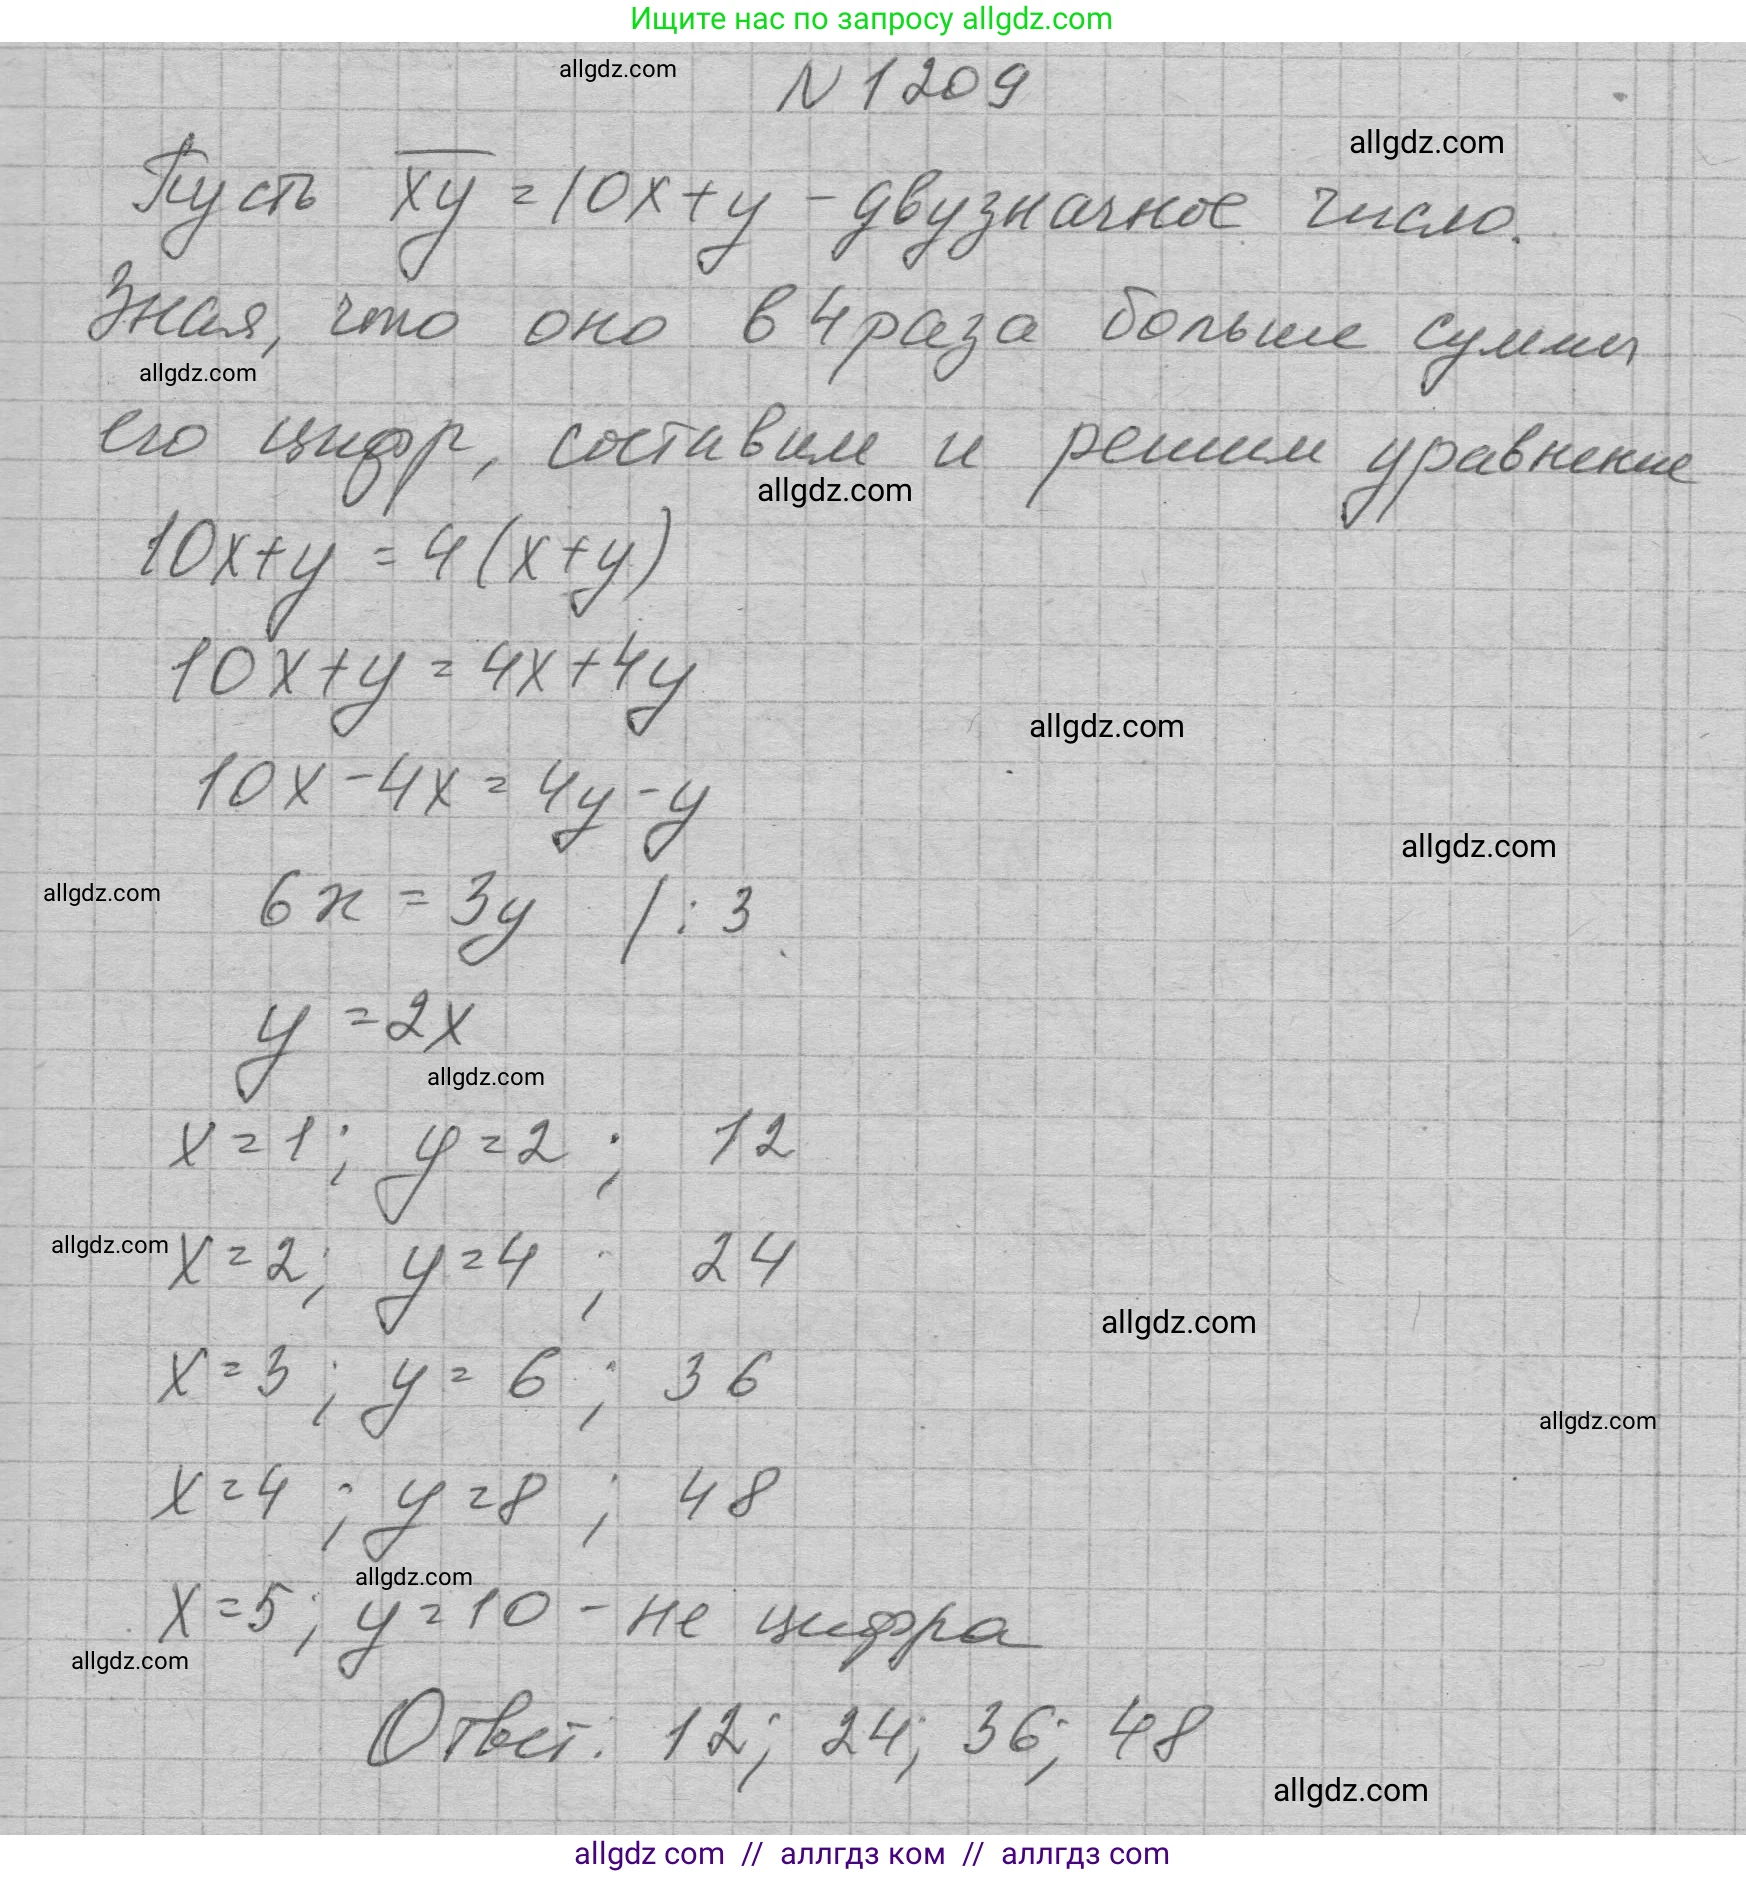 Ищите нас по запросу allgdz.com
allgdz.com
N 1209
allgdz.com
Пусть xy = 10x+y - двузначное число.
Зная, что оно в 4 раза больше суммы
allgdz.com
его цифр, составим и решим уравнение
allgdz.com
10x+y = 4(x+y)
10x+y = 4x+4y
allgdz.com
10x-4x = 4y-y
allgdz.com
allgdz.com
6x = 3y /:3
y = 2x
allgdz.com
x=1; y=2; 12
allgdz.com
x=2; y=4; 24
allgdz.com
x=3; y=6; 36
allgdz.com
x=4; y=8; 48
allgdz.com
x=5; y=10 - не цифра
allgdz.com
Ответ: 12; 24; 36; 48
allgdz.com
allgdz com // аллгдз ком // аллгдз com